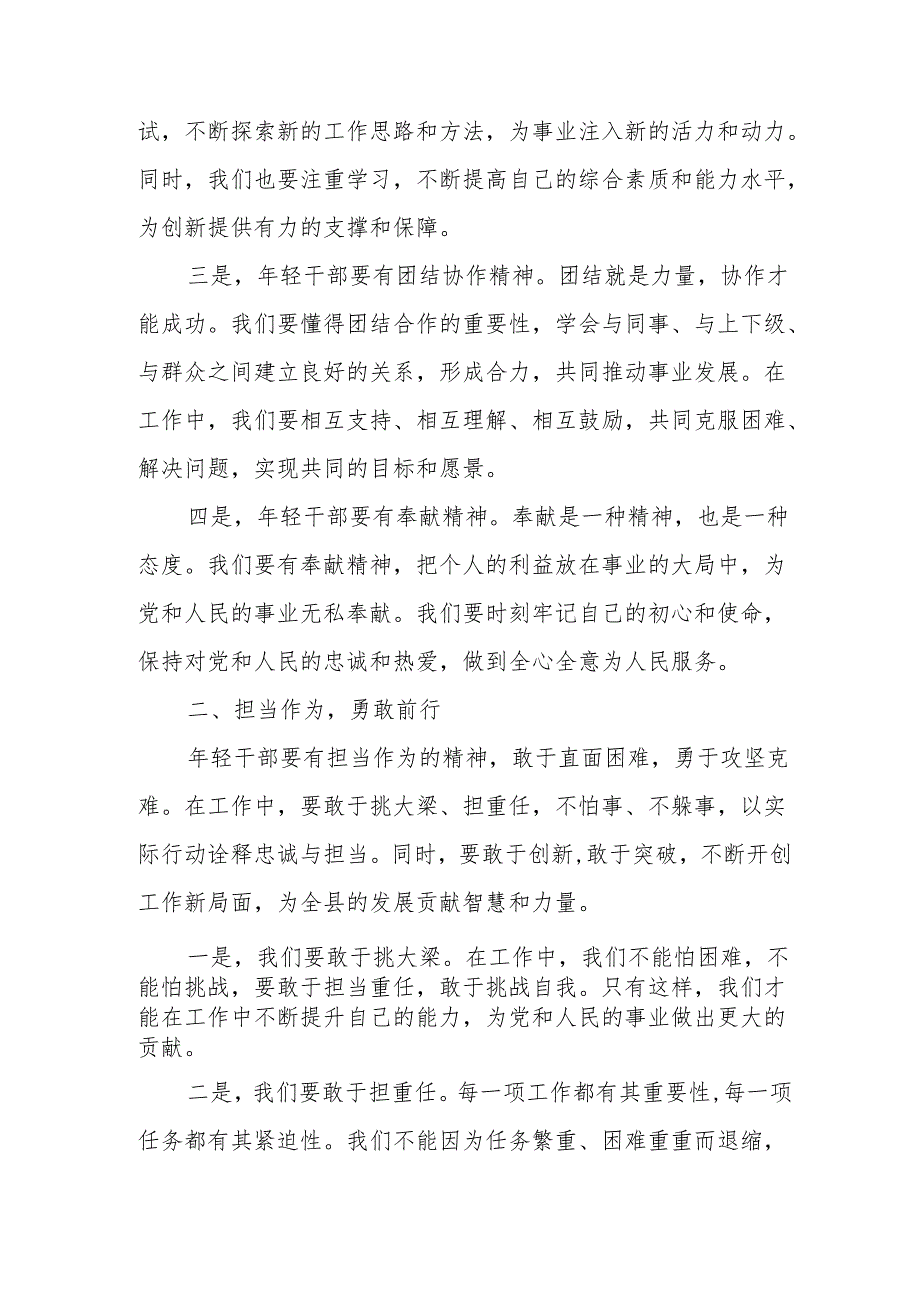 试，不断探索新的工作思路和方法，为事业注入新的活力和动力。
同时，我们也要注重学习，不断提高自己的综合素质和能力水平，
为创新提供有力的支撑和保障。
三是，年轻干部要有团结协作精神。团结就是力量，协作才
能成功。我们要懂得团结合作的重要性，学会与同事、与上下级、
与群众之间建立良好的关系，形成合力，共同推动事业发展。在
工作中，我们要相互支持、相互理解、相互鼓励，共同克服困难、
解决问题，实现共同的目标和愿景。
四是，年轻干部要有奉献精神。奉献是一种精神，也是一种
态度。我们要有奉献精神，把个人的利益放在事业的大局中，为
党和人民的事业无私奉献。我们要时刻牢记自己的初心和使命，
保持对党和人民的忠诚和热爱，做到全心全意为人民服务。
二、担当作为，勇敢前行
年轻干部要有担当作为的精神，敢于直面困难，勇于攻坚克
难。在工作中，要敢于挑大梁、担重任，不怕事、不躲事，以实
际行动诠释忠诚与担当。同时，要敢于创新,敢于突破，不断开创
工作新局面，为全县的发展贡献智慧和力量。
一是，我们要敢于挑大梁。在工作中，我们不能怕困难，不
能怕挑战，要敢于担当重任，敢于挑战自我。只有这样，我们才
能在工作中不断提升自己的能力，为党和人民的事业做出更大的
贡献。
二是，我们要敢于担重任。每一项工作都有其重要性,每一项
任务都有其紧迫性。我们不能因为任务繁重、困难重重而退缩，